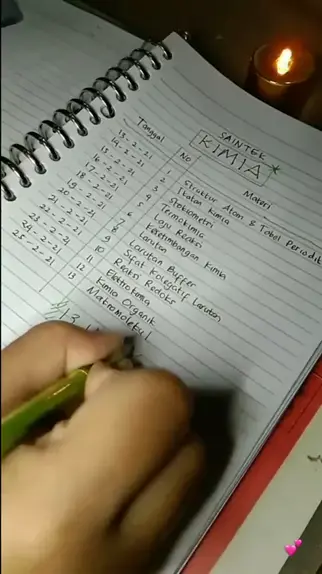 SAINTEK
KIMIA
Tanggal No Materi
13-2-21 1 Struktur Atom & Tabel Periodik
14-2-21 2 Ikatan Kimia
15-2-21 3 Stekiometri
16-2-21 4 Termokimia
17-2-21 5 Laju Reaksi
18-2-21 6 Kesetimbangan Kimia
19-2-21 7 Larutan
20-2-21 8 Larutan Buffer
21-2-21 9 Sifat Kolegatif Larutan
22-2-21 10 Reaksi Redoks
23-2-21 11 Elektrokimia
24-2-21 12 Kimia Organik
25-2-21 13 Makromolekul
13